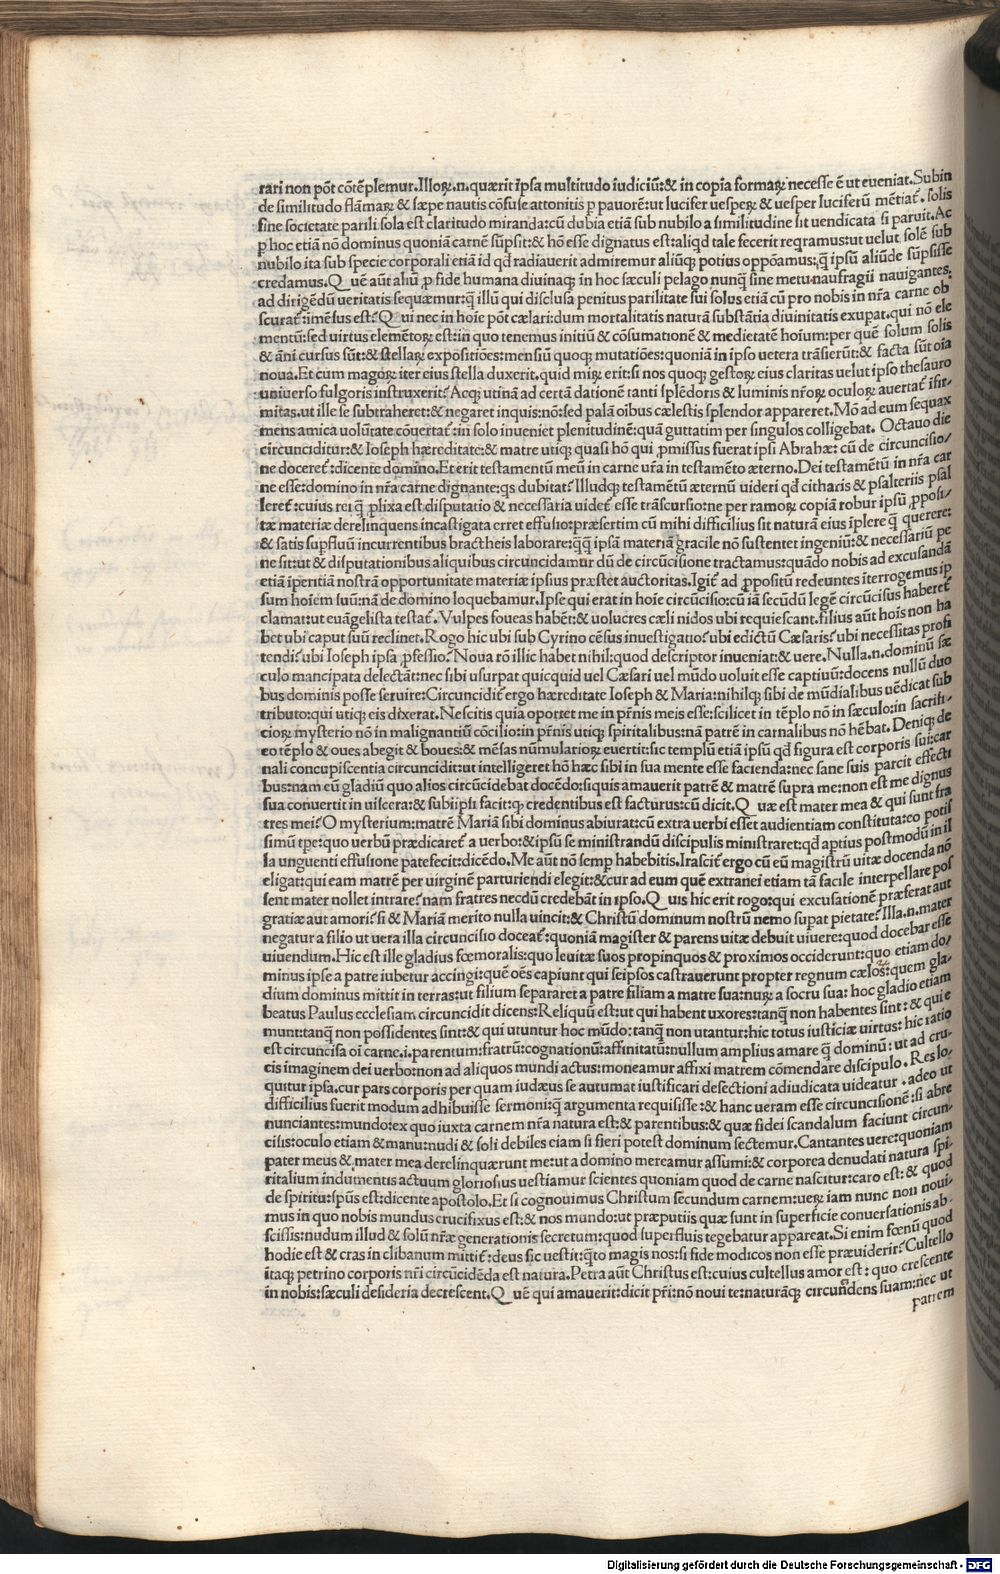 rari non põt cõtẽplemur. Illoꝝ.n. quærit ipsa multitudo iudiciũ: & in copia formaꝝ necesse ẽ ut eueniat. Subin
de similitudo flãmaꝝ & sæpe nautis cõfuse attonitis ꝑ pauorẽ: ut lucifer uesperꝝ & uesper luciferũ mẽtiat̃. solis
sine societate parili sola est claritudo miranda: cũ dubia etiã sub nubilo a similitudine sit uendicata si paruit. Ac
ꝑ hoc etiã nõ dominus quoniã carnẽ sũpsit: & hõ esse dignatus est: aliqd tale fecerit reqramus: ut uelut solẽ sub
nubilo ita sub specie corporali etiã id qd radiauerit admiremur aliũꝗ potius oppõamus: ꝗ ipsũ aliũde sũpsisse
credamus. Quẽ aũt aliũ ꝓ fide humana diuinaꝗ in hoc sæculi pelago nunꝗ̃ sine metu naufragii nauigantes.
ad dirigẽdũ ueritatis sequæmur: ꝗ̃ illũ qui disclusa penitus parilitate sui solus etiã cũ pro nobis in nr̃a carne ob
scurat̃: imẽsus est? Qui nec in hoie põt cælari: dum mortalitatis naturã substãtia diuinitatis exupat. qui nõ ele
mentũ: sed uirtus elemẽtoꝝ est: in quo tenemus initiũ & cõsumationẽ & medietatẽ hoium: per quẽ solum solis
& ãni cursus sũt: & stellaꝝ expositiões: mensiũ quoꝗ mutatiões: quoniã in ipso uetera trãsierũt: & facta sũt oia
noua. Et cum magoꝝ iter eius stella duxerit. quid miꝝ erit: si nos quoꝗ gestoꝝ eius claritas uelut ipso thesauro
uniuerso fulgoris instruxerit? Acꝗ utinã ad certã dationẽ tanti splẽdoris & luminis nr̃oꝝ oculoꝝ auertat̃ ifir-
mitas. ut ille se subtraheret: & negaret inquis: nõ: sed palã oibus cælestis splendor appareret. Mõ ad eum sequax
mens amica uolũtate cõuertat̃: in solo inueniet plenitudinẽ: quã guttatim per singulos colligebat. Octauo die
circunciditur: & Ioseph hæreditate: & matre utiꝗ: quasi hõ qui ꝓmissus fuerat ipsi Abrahæ: cũ de circuncisio/
ne doceret̃: dicente domino. Et erit testamentũ meũ in carne ur̃a in testamẽto æterno. Dei testamẽtũ in nr̃a car
ne esse: domino in nr̃a carne dignante: qs dubitat? Illudꝗ testamẽtũ æternũ uideri qd citharis & psalteriis psal
leret̃: cuius rei ꝗ ꝓlixa est disputatio & necessaria uidet̃ esse trãscursio: ne per ramoꝝ copiã robur ipsũ ꝓposi-
tæ materiæ derelinquens incastigata erret effusio: præsertim cũ mihi difficilius sit naturã eius iplere ꝗ̃ querere:
& satis supfluũ incurrentibus bractheis laborare: ꝗ̃ꝗ̃ ipsã materiã gracile nõ sustentet ingeniũ: & necessariũ pe
ne sit: ut & disputationibus aliquibus circuncidamur dũ de circũcisione tractamus: quãdo nobis ad excusandã
etiã iperitiã nostrã opportunitate materiæ ipsius præstet auctoritas. Igit̃ ad ꝓpositũ redeuntes iterrogemus ip
sum hoiem suũ: nã de domino loquebamur. Ipse qui erat in hoie circũcisio: cũ iã secũdũ legẽ circũcisus haberet̃
clamat: ut euãgelista testat̃. Vulpes foueas habẽt: & uolucres cæli nidos ubi requiescant. filius aũt hois non ha
bet ubi caput suũ reclinet. Rogo hic ubi sub Cyrino cẽsus inuestigatio? ubi edictũ Cæsaris? ubi necessitas profi
tendi? ubi Ioseph ipsa ꝓfessio? Noua rõ illic habet nihil: quod descriptor inueniat: & uere. Nulla.n. dominũ sæ
culo mancipata delectãt: nec sibi usurpat quicquid uel Cæsari uel mũdo uoluit esse captiuũ: docens nullũ duo
bus dominis posse seruire: Circuncidit̃ ergo hæreditate Ioseph & Maria: nihilꝗ sibi de mũdialibus uẽdicat sub
tributo: qui utiꝗ eis dixerat. Nescitis quia oportet me in pr̃nis meis esse: scilicet in tẽplo nõ in sæculo: in sacrifi-
cioꝝ mysterio nõ in malignantiũ cõcilio: in pr̃nis utiꝗ spiritalibus: nã patrẽ in carnalibus nõ hẽbat. Deniꝗ de
eo tẽplo & oues abegit & boues: & mẽsas nũmularioꝝ euertit: sic templũ etiã ipsũ qd figura est corporis sui: car
nali concupiscentia circuncidit: ut intelligeret hõ hæc sibi in sua mente esse facienda: nec sane suis parcit effecti
bus: nam eũ gladiũ quo alios circũcidebat docẽdo: siquis amauerit patrẽ & matrẽ supra me: non est me dignus
sua conuertit in uiscera: & subiipsi facit: ꝗ credentibus est facturus: cũ dicit. Quæ est mater mea & qui sunt fra
tres mei? O mysterium: matrẽ Mariã sibi dominus abiurat: cũ extra uerbi esset audientiam constituta: eo potis
simũ tp̃e: quo uerbũ prædicaret̃ a uerbo: & ipsũ se ministrandũ discipulis ministraret: qd aptius postmodũ in il
la unguenti effusione patefecit: dicẽdo. Me aũt nõ semꝑ habebitis. Irascit̃ ergo cũ eũ magistrũ uitæ docenda nõ
eligat: qui eam matrẽ per uirginẽ parturiendi elegit: & cur ad eum quẽ extranei etiam tã facile interpellare pos
sent mater nollet intrare? nam fratres necdũ credebãt in ipso. Quis hic erit rogo: qui excusationẽ præferat aut
gratiæ aut amori? si & Mariã merito nulla uincit: & Christũ dominum nostrũ nemo supat pietate? Illa.n. mater
negatur a filio ut uera illa circuncisio doceat̃: quoniã magister & parens uitæ debuit uiuere: quod docebar esse
uiuendum. Hic est ille gladius fœmoralis: quo leuitæ suos propinquos & proximos occiderunt: quo etiam do/
minus ipse a patre iubetur accingi: quẽ oẽs capiunt qui seipsos castrauerunt propter regnum cælos: quem gla-
dium dominus mittit in terras: ut filium separaret a patre filiam a matre sua: nurꝝ a socru sua: hoc gladio etiam
beatus Paulus ecclesiam circuncidit dicens: Reliquũ est: ut qui habent uxores: tanꝗ̃ non habentes sint: & qui e
munt: tanꝗ̃ non possidentes sint: & qui utuntur hoc mũdo: tanꝗ̃ non utantur: hic totus iusticiæ uirtus: hic ratio
est circuncisa oi carne.i. parentum: fratrũ: cognationũ: affinitatũ: nullum amplius amare ꝗ̃ dominũ: ut ad cru-
cis imaginem dei uerbo: non ad aliquos mundi actus: moneamur affixi matrem cõmendare discipulo. Res lo-
quitur ipsa. cur pars corporis per quam iudæus se autumat iustificari desectioni adiudicata uideatur. adeo ut
difficilius fuerit modum adhibuisse sermoni: ꝗ̃ argumenta requisisse: & hanc ueram esse circuncisionẽ: si abre
nunciantes: mundo: ex quo iuxta carnem nr̃a natura est: & parentibus: & quæ fidei scandalum faciunt circun-
cisis: oculo etiam & manu: nudi & soli debiles eiam si fieri potest dominum sectemur. Cantantes uere: quoniam
pater meus & mater mea derelinquærunt me: ut a domino mereamur assumi: & corporea denudati natura spi-
ritalium indumentis actuum gloriosius uestiamur scientes quoniam quod de carne nascitur: caro est: & quod
de spiritu: spũs est: dicente apostolo. Et si cognouimus Christum secundum carnem: ueꝝ iam nunc non noui-
mus in quo nobis mundus crucifixus est: & nos mundo: ut præputiis quæ sunt in superficie conuersationis ab-
scissis: nudum illud & solũ nr̃æ generationis secretum: quod superfluis tegebatur appareat. Si enim fœnũ quod
hodie est & cras in clibanum mittit̃: deus sic uestit: ꝗ̃to magis nos: si fide modicos non esse præuiderit? Cultello
itaꝗ petrino corporis nr̃i circũcidẽda est natura. Petra aũt Christus est: cuius cultellus amor est: quo crescente
in nobis: sæculi desideria decrescent. Quẽ qui amauerit: dicit pr̃i: nõ noui te: naturãꝗ circundens suam: nec ut
patrem
Digitalisierung gefördert durch die Deutsche Forschungsgemeinschaft - DFG